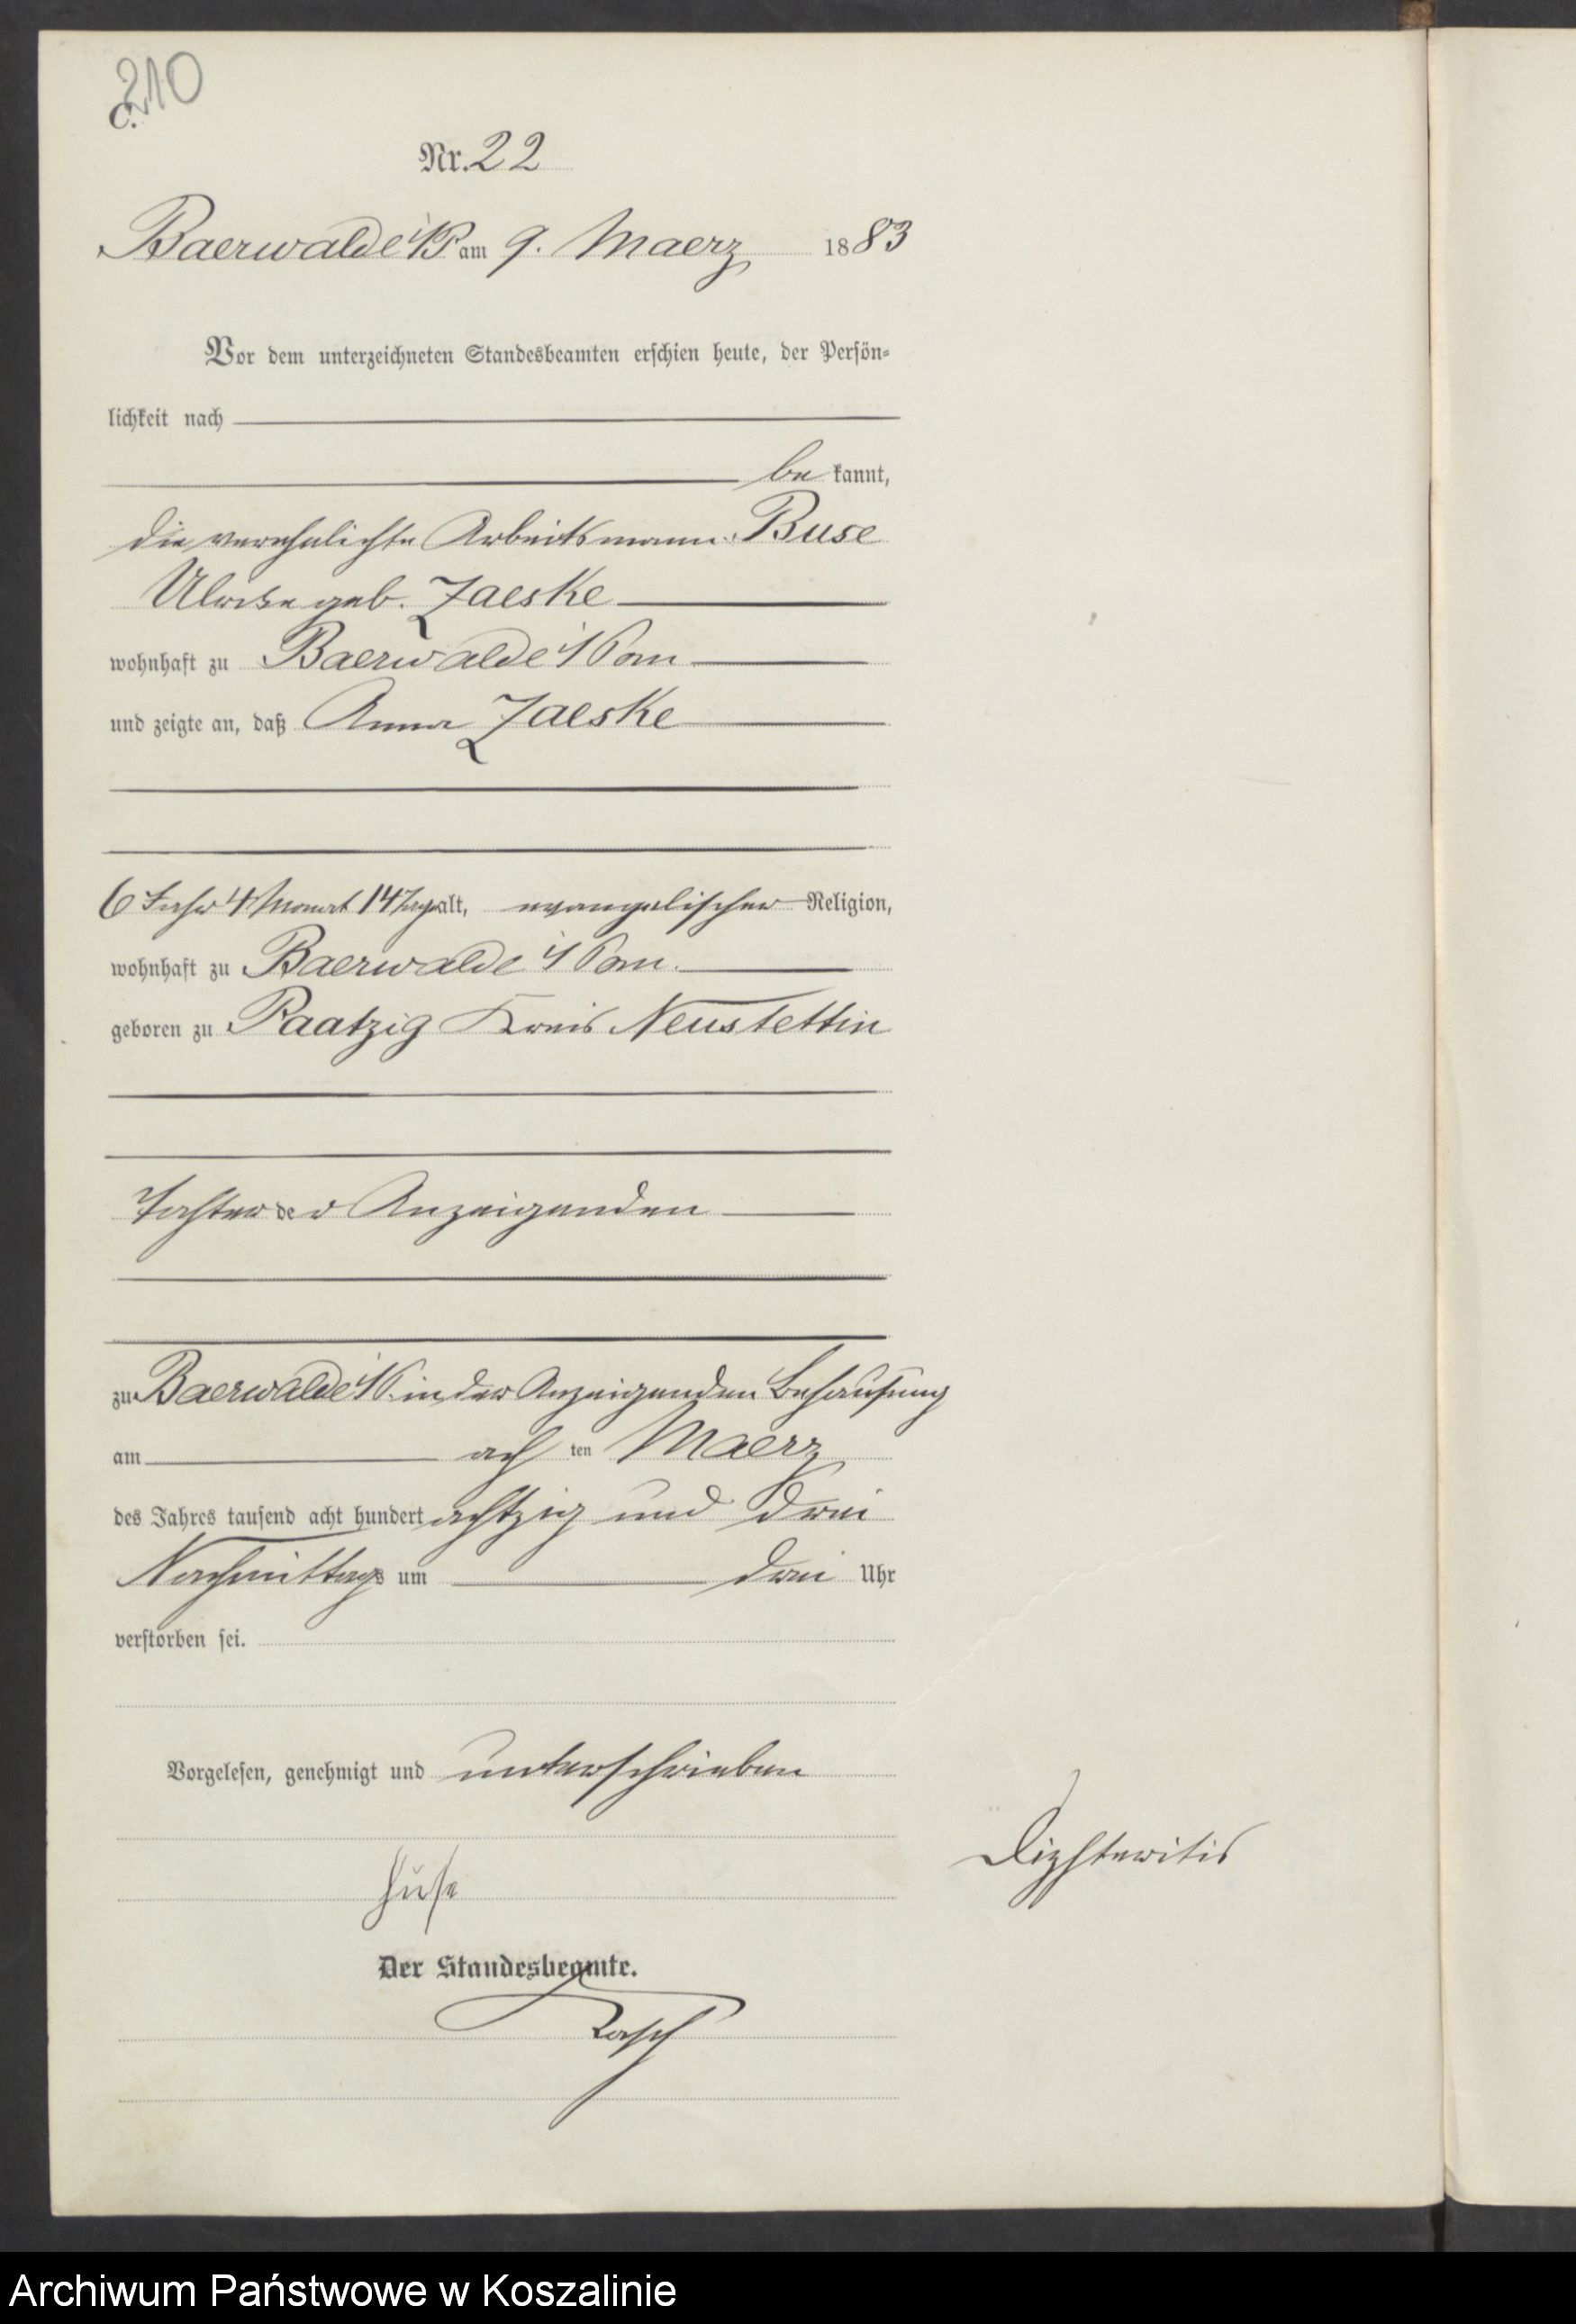 210
C.
Nr. 22
Baerwalde i/P am 9. Maerz 1883
Vor dem unterzeichneten Standesbeamten erschien heute, der Persön-
lichkeit nach
be kannt,
die verehelichte Arbeitsmann Buse
Ulrike geb. Zaeske
wohnhaft zu Baerwalde i/Pom
und zeigte an, daß Anna Zaeske
6 Jahr 4 Monat 14 Tage alt, evangelischer Religion,
wohnhaft zu Baerwalde i/Pom.
geboren zu Raatzig Kreis Neustettin
Tochter der Anzeigenden
zu Baerwalde i/P. in der Anzeigenden Behausung
am ach ten Maerz
des Jahres tausend acht hundert achtzig und drei
Nachmittags um drei Uhr
verstorben sei.
Vorgelesen, genehmigt und unterschrieben
Diphteritis
Der Standesbeamte.
Archiwum Państwowe w Koszalinie